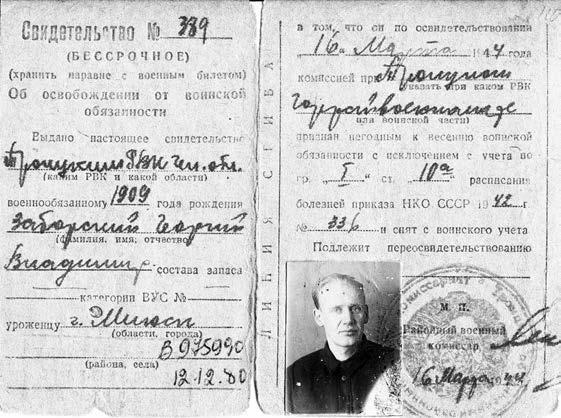 Свидетельство № 339
(БЕССРОЧНОЕ)
(хранить наравне с военным билетом)
Об освобождении от воинской
обязанности
Выдано настоящее свидетельство
Троицким РВК Чел. обл.
(каким РВК и какой области)
военнообязанному 1909 года рождения
Заборский Георгий
(фамилия, имя, отчество)
Владимир. состава запаса
категории ВУС №
уроженцу г. Минск
(области, города)
В 975990
(района, села)
12.12.80
ЛИНИЯ СГИБА
в том, что он по освидетельствовании
16 Марта 1944 года
комиссией при Троицком
(указать при каком РВК
Горрайвоенкомате
или воинской части)
признан негодным к несению воинской
обязанности с исключением с учета по
гр. I ст. 10а расписания
болезней приказа НКО СССР 1942 г.
№ 336 и снят с воинского учета
Подлежит переосвидетельствованию
М. П.
Районный военный
комиссар
16 Марта 1944